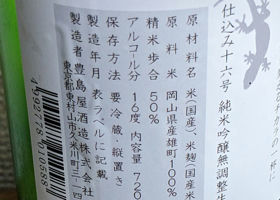 仕込み十六号 純米吟醸無調整生
原材料名 米(国産)、米麹(国産米
原料米 岡山県産雄町100%
精米歩合 50%
アルコール分 16度 内容量 720
保存方法 要冷蔵・縦置き
製造年月 表ラベルに記載
製造者 豊島屋酒造株式会
東京都東村山市久米川町三-一四
4992778010588